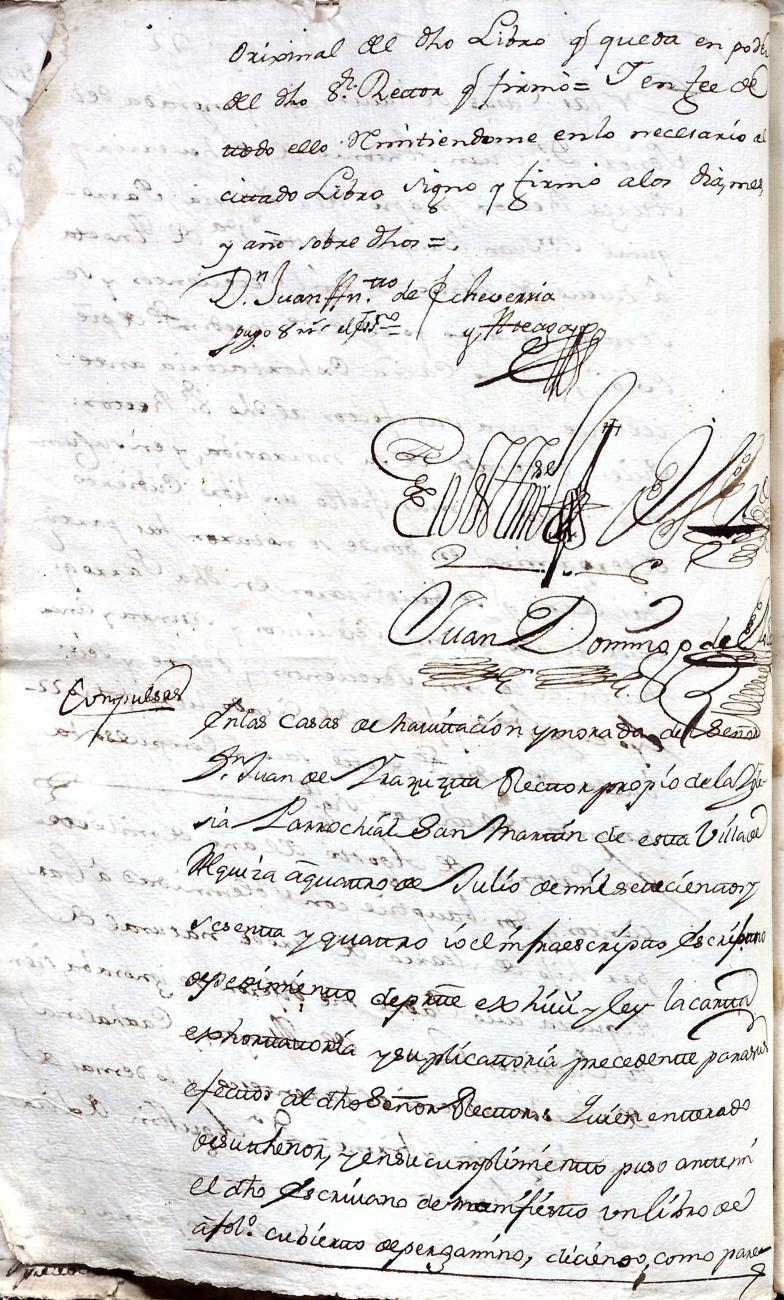 Orixinal del dho Libro q̃ queda en poder
del dho S.r Rector q̃ firmó= Y en fee de
ttodo ello Rmitiendome en lo necesario al
cittado Libro signo y firmo a los dia, mes,
y año sobre dhos=.
D.n Juan Ant.o de Echeverria
pago 8 rr.s el
y Arteaga
En testim.o de Verdad
Juan Domingo de
Compulsa
En las casas de havittacion y morada del Señor
D.n Juan de Yrazuzta Rector propio de la Ygle
sia Parrochial San Martin de esta Villa de
Alquiza a quattro de Julio de mil settecientos y
sesenta y quattro io el infraescripto Escribano
de pedimiento de partte exhiví y ley la cartta
exhortattoria y suplicattoria precedentte para sus
efectos al dho Señor Rector. Quien entterado
de su thenor, y en su cumplimiento puso antte mi
el dho Escrivano de manifiesto un libro de
a fol.o cubierto de pergamino, diciendo, como pare